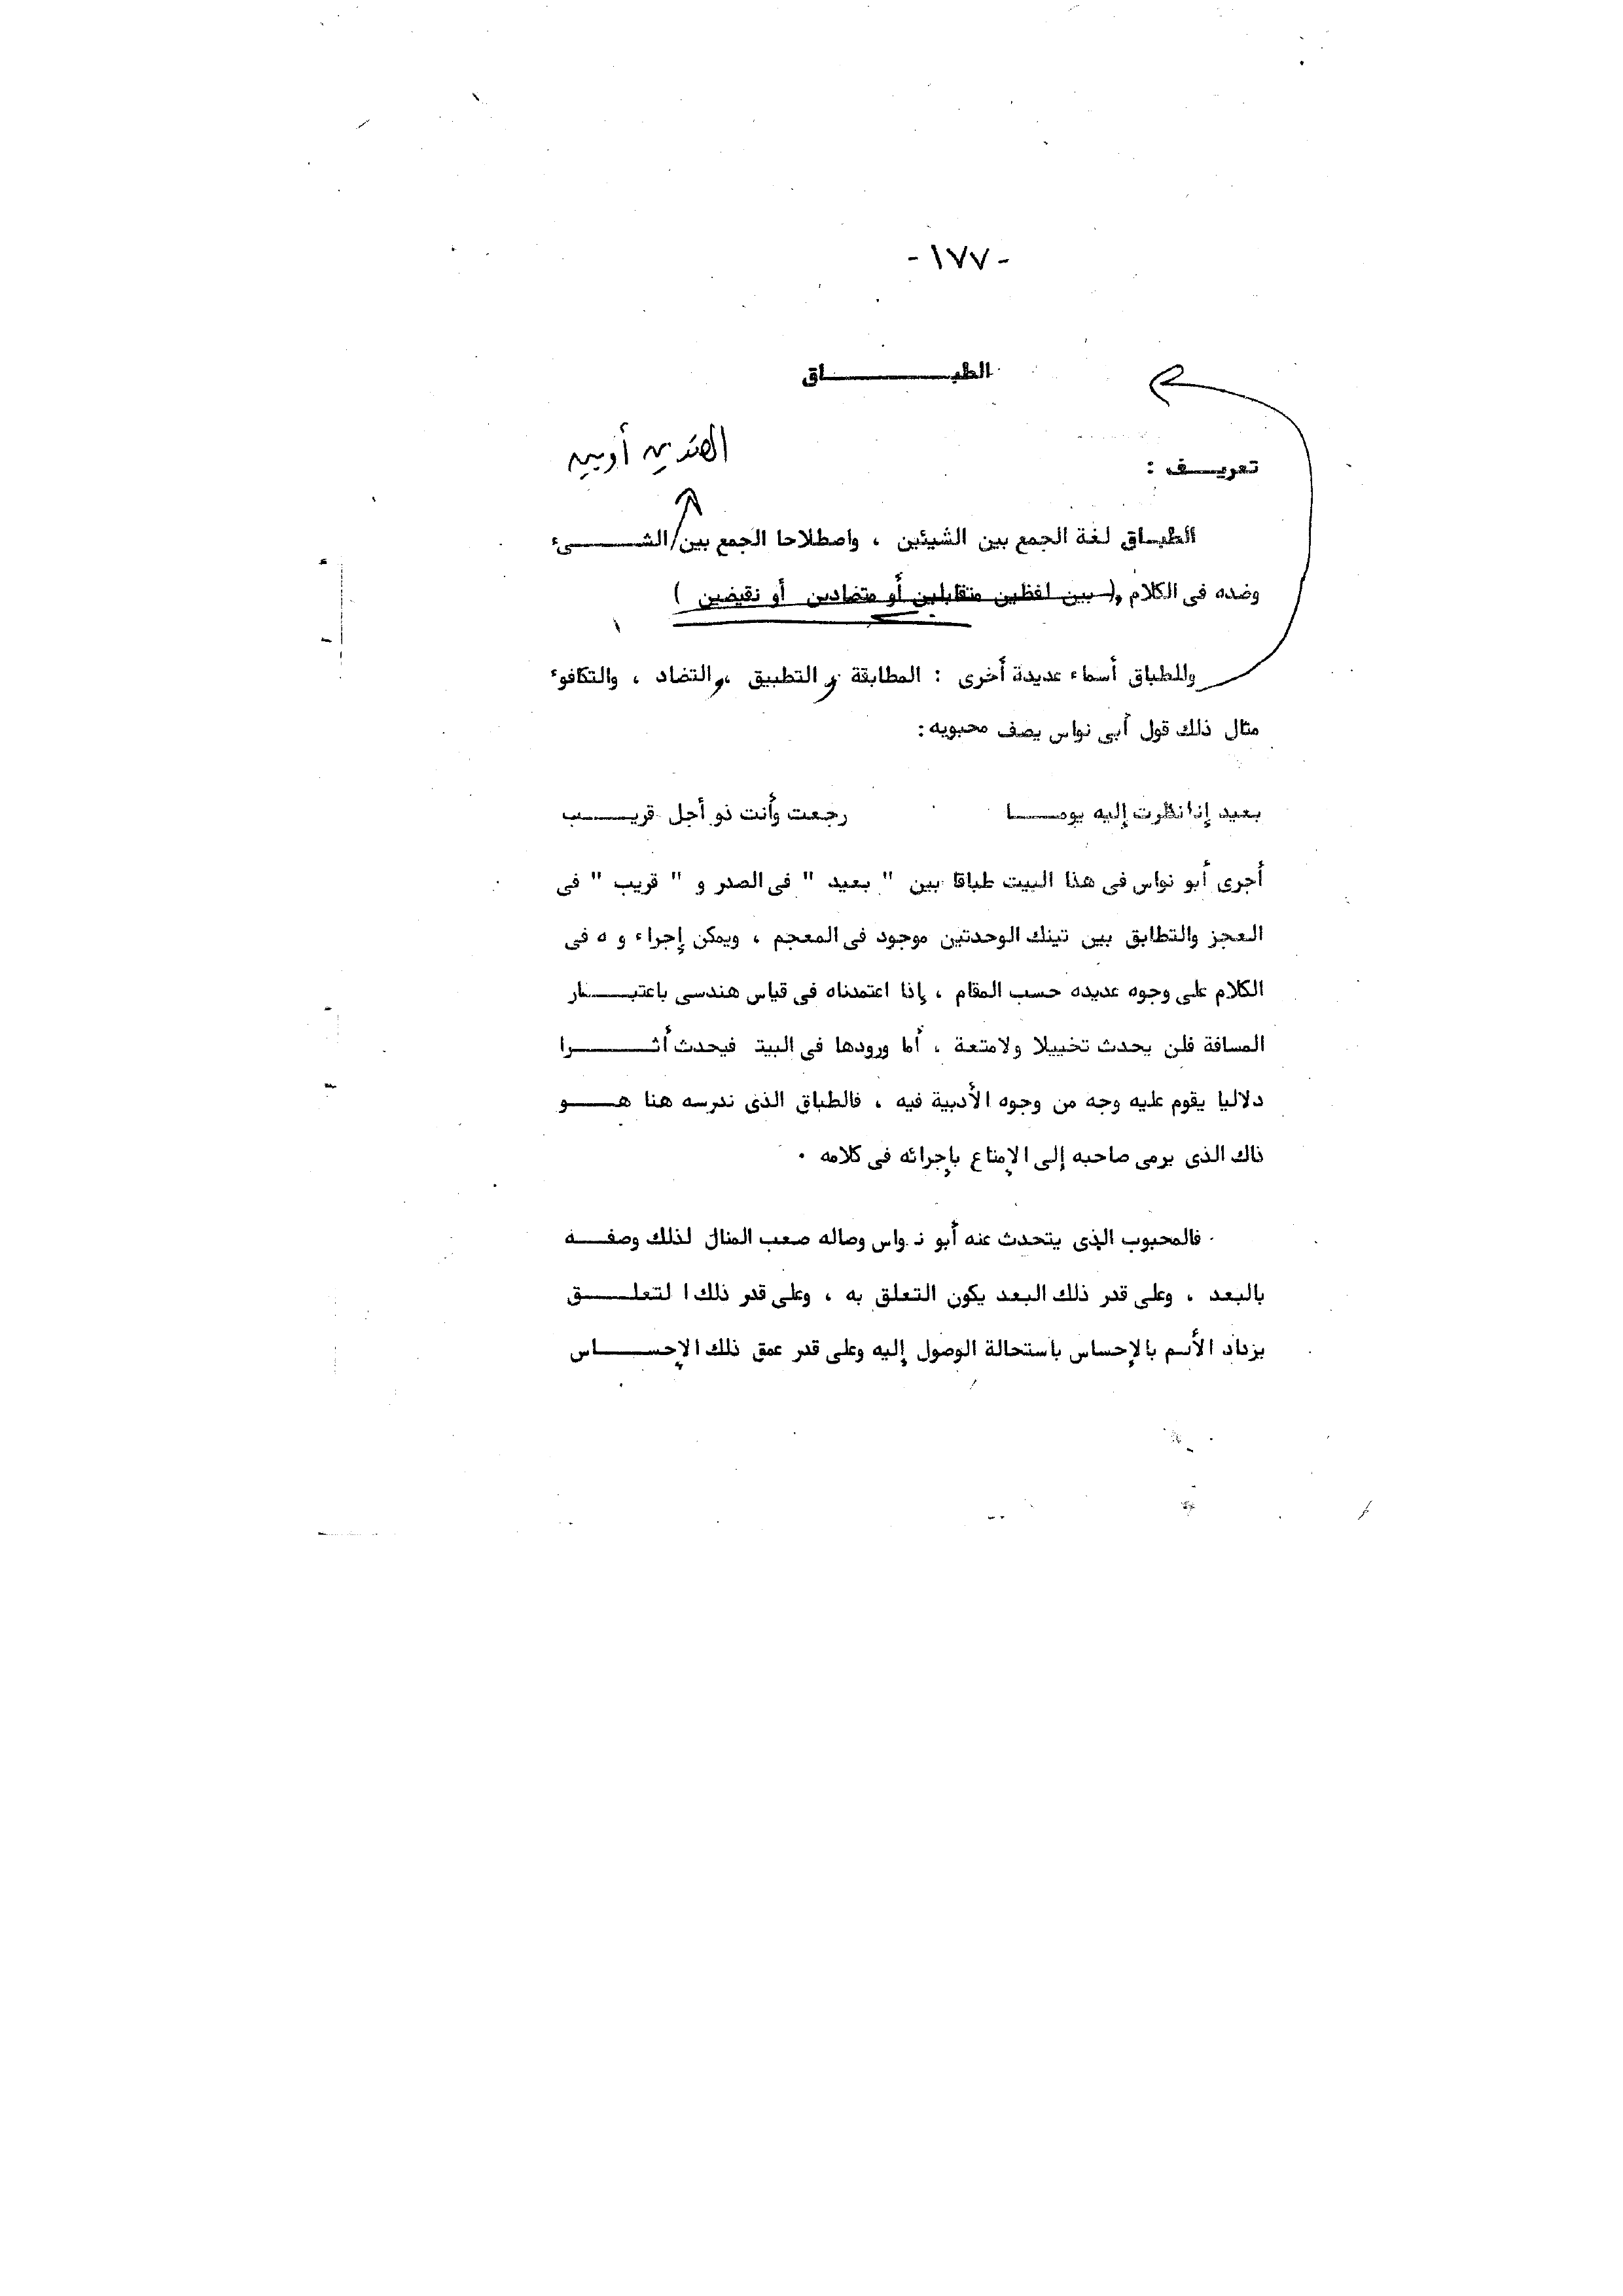 - ١٧٧ -
الطبـــــــــاق
الضدين أو بين
تعريـــف :
الطبـاق لغة الجمع بين الشيئين ، واصطلاحا الجمع بين/الشـــــىء
وضده فى الكلام ( بين لفظين متقابلين أو متضادين أو نقيضين )
وللطباق أسماء عديدة أخرى : المطابقة و التطبيق ، والتضاد ، والتكافوء
مثال ذلك قول أبى نواس يصف محبوبه :
بعيد إذا نظرت إليه يومـــا رجعت وأنت ذو أجل قريـــب
أجرى أبو نواس فى هذا البيت طباقا بين " بعيد " فى الصدر و " قريب " فى
العجز والتطابق بين تينك الوحدتين موجود فى المعجم ، ويمكن إجراء و ه فى
الكلام على وجوه عديده حسب المقام ، إذا اعتمدناه فى قياس هندسى باعتبـــار
المسافة فلن يحدث تخييلا ولامتعة ، أما ورودها فى البيت فيحدث أثـــــرا
دلاليا يقوم عليه وجه من وجوه الأدبية فيه ، فالطباق الذى ندرسه هنا هـــو
ذاك الذى يرمى صاحبه إلى الإمتاع بإجرائه فى كلامه ٠
فالمحبوب الذى يتحدث عنه أبو نـواس وصاله صعب المنال لذلك وصفـــه
بالبعد ، وعلى قدر ذلك البعد يكون التعلق به ، وعلى قدر ذلك ا لتعلـــق
يزداد الألـم بالإحساس باستحالة الوصول إليه وعلى قدر عمق ذلك الإحســـاس